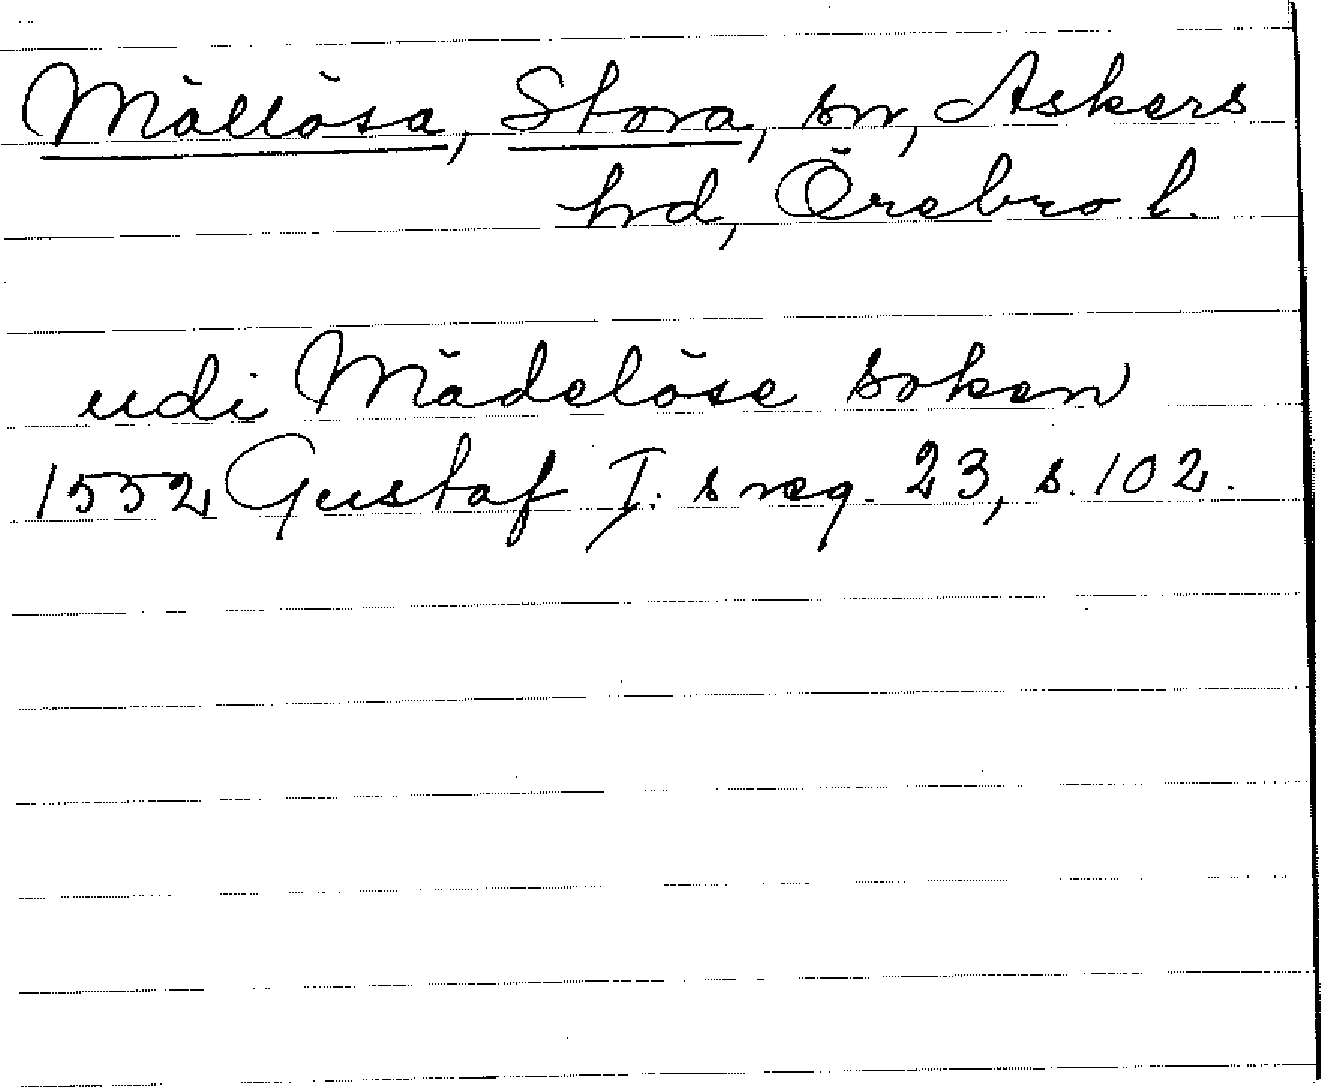 Mellösa, Stora, sn, Askers
hd, Örebro l.
udi Mädelöse soken
1552 Gustaf I:s reg. 23, s. 102.